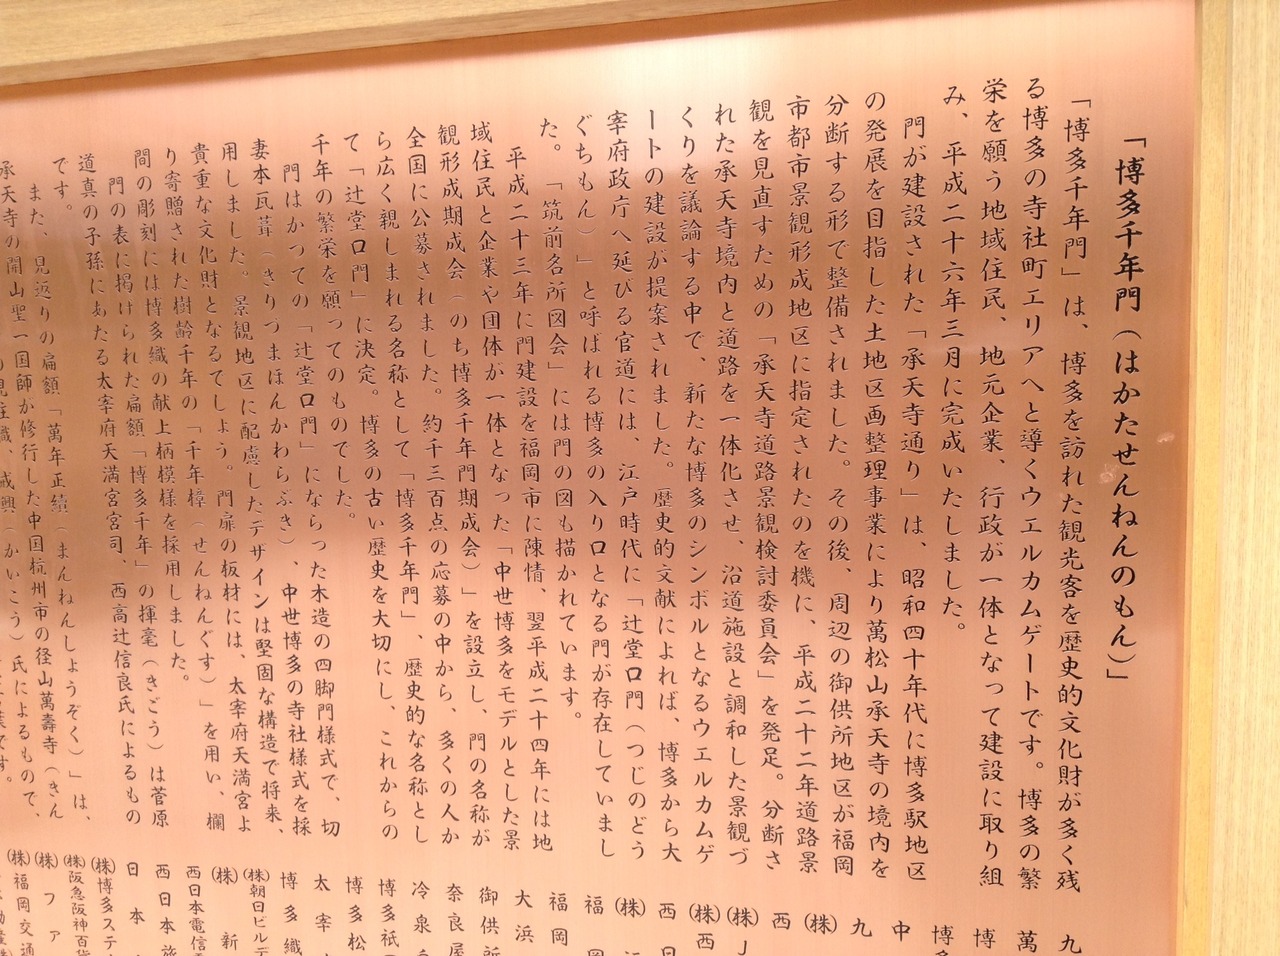 「博多千年門（はかたせんねんのもん）」
「博多千年門」は、博多を訪れた観光客を歴史的文化財が多く残
る博多の寺社町エリアへと導くウエルカムゲートです。博多の繁
栄を願う地域住民、地元企業、行政が一体となって建設に取り組
み、平成二十六年三月に完成いたしました。
門が建設された「承天寺通り」は、昭和四十年代に博多駅地区
の発展を目指した土地区画整理事業により萬松山承天寺の境内を
分断する形で整備されました。その後、周辺の御供所地区が福岡
市都市景観形成地区に指定されたのを機に、平成二十二年道路景
観を見直すための「承天寺道路景観検討委員会」を発足。分断さ
れた承天寺境内と道路を一体化させ、沿道施設と調和した景観づ
くりを議論する中で、新たな博多のシンボルとなるウエルカムゲ
ートの建設が提案されました。歴史的文献によれば、博多から大
宰府政庁へ延びる官道には、江戸時代に「辻堂口門（つじのどう
ぐちもん）」と呼ばれる博多の入り口となる門が存在していまし
た。「筑前名所図会」には門の図も描かれています。
平成二十三年に門建設を福岡市に陳情、翌平成二十四年には地
域住民と企業や団体が一体となった「中世博多をモデルとした景
観形成期成会（のち博多千年門期成会）」を設立し、門の名称が
全国に公募されました。約千三百点の応募の中から、多くの人か
ら広く親しまれる名称として「博多千年門」、歴史的な名称とし
て「辻堂口門」に決定。博多の古い歴史を大切にし、これからの
千年の繁栄を願ってのものでした。
門はかつての「辻堂口門」にならった木造の四脚門様式で、切
妻本瓦葺（きりつまほんかわらぶき）、中世博多の寺社様式を採
用しました。景観地区に配慮したデザインは堅固な構造で将来、
貴重な文化財となるでしょう。門扉の板材には、太宰府天満宮よ
り寄贈された樹齢千年の「千年樟（せんねんぐす）」を用い、欄
間の彫刻には博多織の献上柄模様を採用しました。
門の表に掲げられた扁額「博多千年」の揮毫（きごう）は菅原
道真の子孫にあたる太宰府天満宮宮司、西高辻信良氏によるもの
です。
また、見返りの扁額「萬年正續（まんねんしょうぞく）」は、
承天寺の開山聖一国師が修行した中国杭州市の径山萬壽寺（きん
（かいこう）氏によるもので、
九
萬
博
博多
中
九
(株)
西
(株)J
(株)西
西日
(株)
福
福岡
大浜
御供所
奈良屋
冷泉
博多祇
博多松
太宰
博多織
(株)朝日ビルデ
(株)新
西日本電信
西日本旅
日本
(株)博多ステ
(株)阪急阪神百貨
(株)ファ
(株)福岡交通